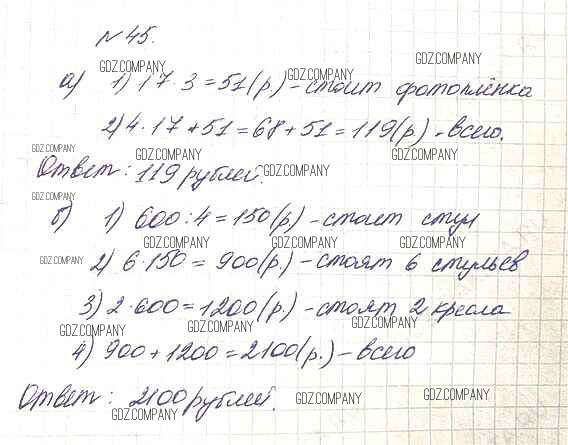 №45.
GDZ.COMPANY GDZ.COMPANY GDZ.COMPANY
а) 1) 17·3=51(р) - стоит фотоплёнка
2) 4·17+51=68+51=119(р) - всего.
GDZ.COMPANY GDZ.COMPANY GDZ.COMPANY
Ответ: 119 рублей. GDZ.COMPANY
GDZ.COMPANY
б) 1) 600:4=150(р) - стоит стул
GDZ.COMPANY GDZ.COMPANY GDZ.COMPANY
GDZ.COMPANY 2) 6·150=900(р.) - стоят 6 стульев
3) 2·600=1200(р.) - стоят 2 кресла
GDZ.COMPANY GDZ.COMPANY GDZ.COMPANY
4) 900+1200=2100(р.) - всего
Ответ: 2100 рублей. GDZ.COMPANY GDZ.COMPANY
GDZ.COMPANY